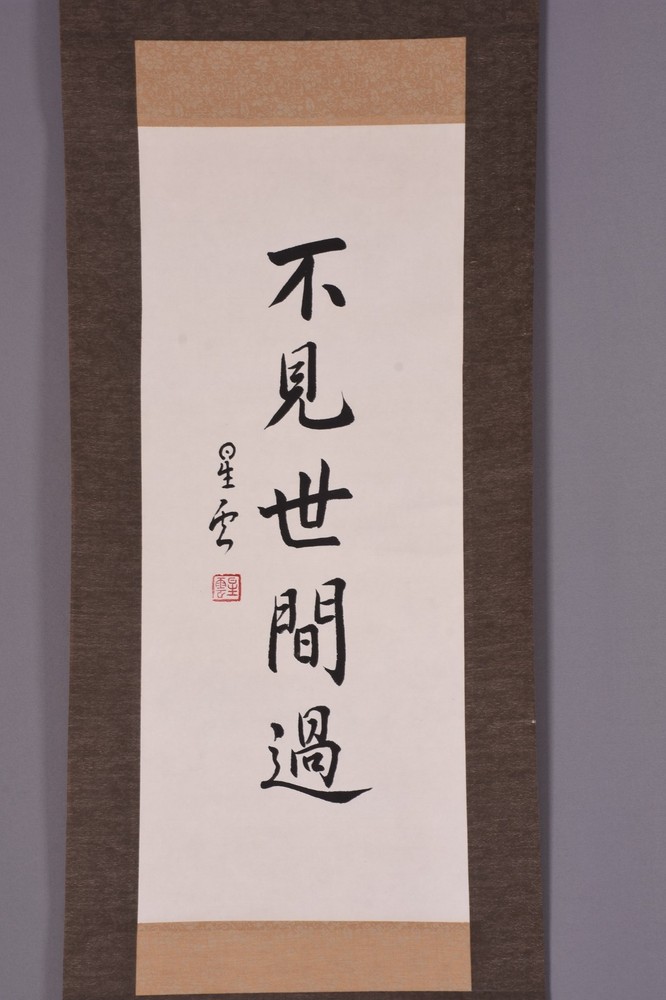 不見世間過
星雲
星雲